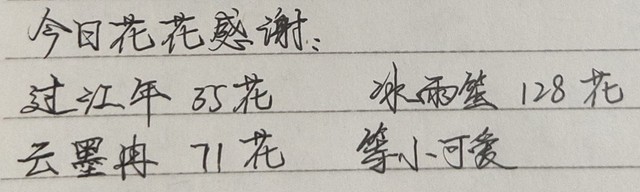 今日花花感谢：
过江年 35花 冰雨笙 128花
云墨冉 71花 等小可爱